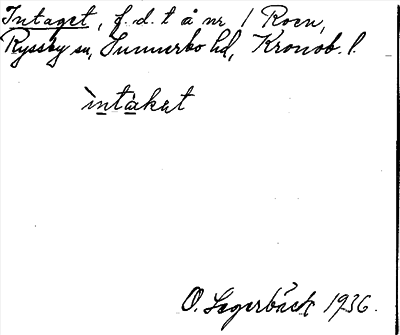 Intaget, f. d. t å nr 1 Roen,
Ryssby sn, Sunnerbo hd, Kronob. l.
ìntàkat
O. Lagerbäck 1936.